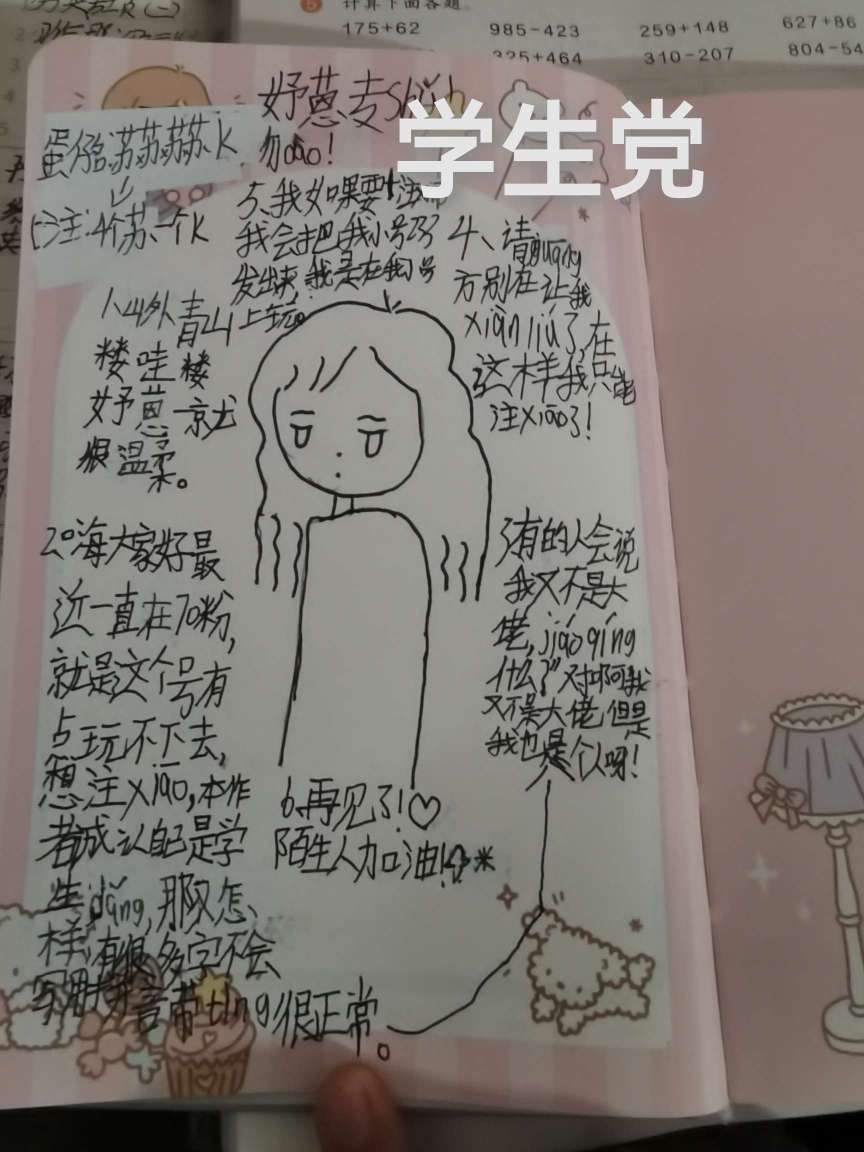 计算下面各题。
175+62 985-423 259+148 627+86
325+464 310-207 804-54
学生党
妤蒽专
勿
蛋仔名:苏苏苏苏K
注:4个苏、一个K
5、我如果要注
我会把我小号
发出来,我是在我小号
上玩。
4、请guān
方别在让我
xiàn liú了,在
这样我只能
注xiāo了!
1、山外青山
楼哇楼
妤蒽一就
很温柔。
2。嗨大家好最
近一直在70粉,
就是这个号有
点玩不下去,
想注xiāo,本作
者成认自己是学
生dǎng,那又怎
样,有很多字不会
写用 音带tìng很正常。
3有的人会说
我又不是大
佬,jiǎo qíng
什么?”对啊我
又不是大佬,但是
我也是个人呀!
6、再见了!♡
陌生人加油!